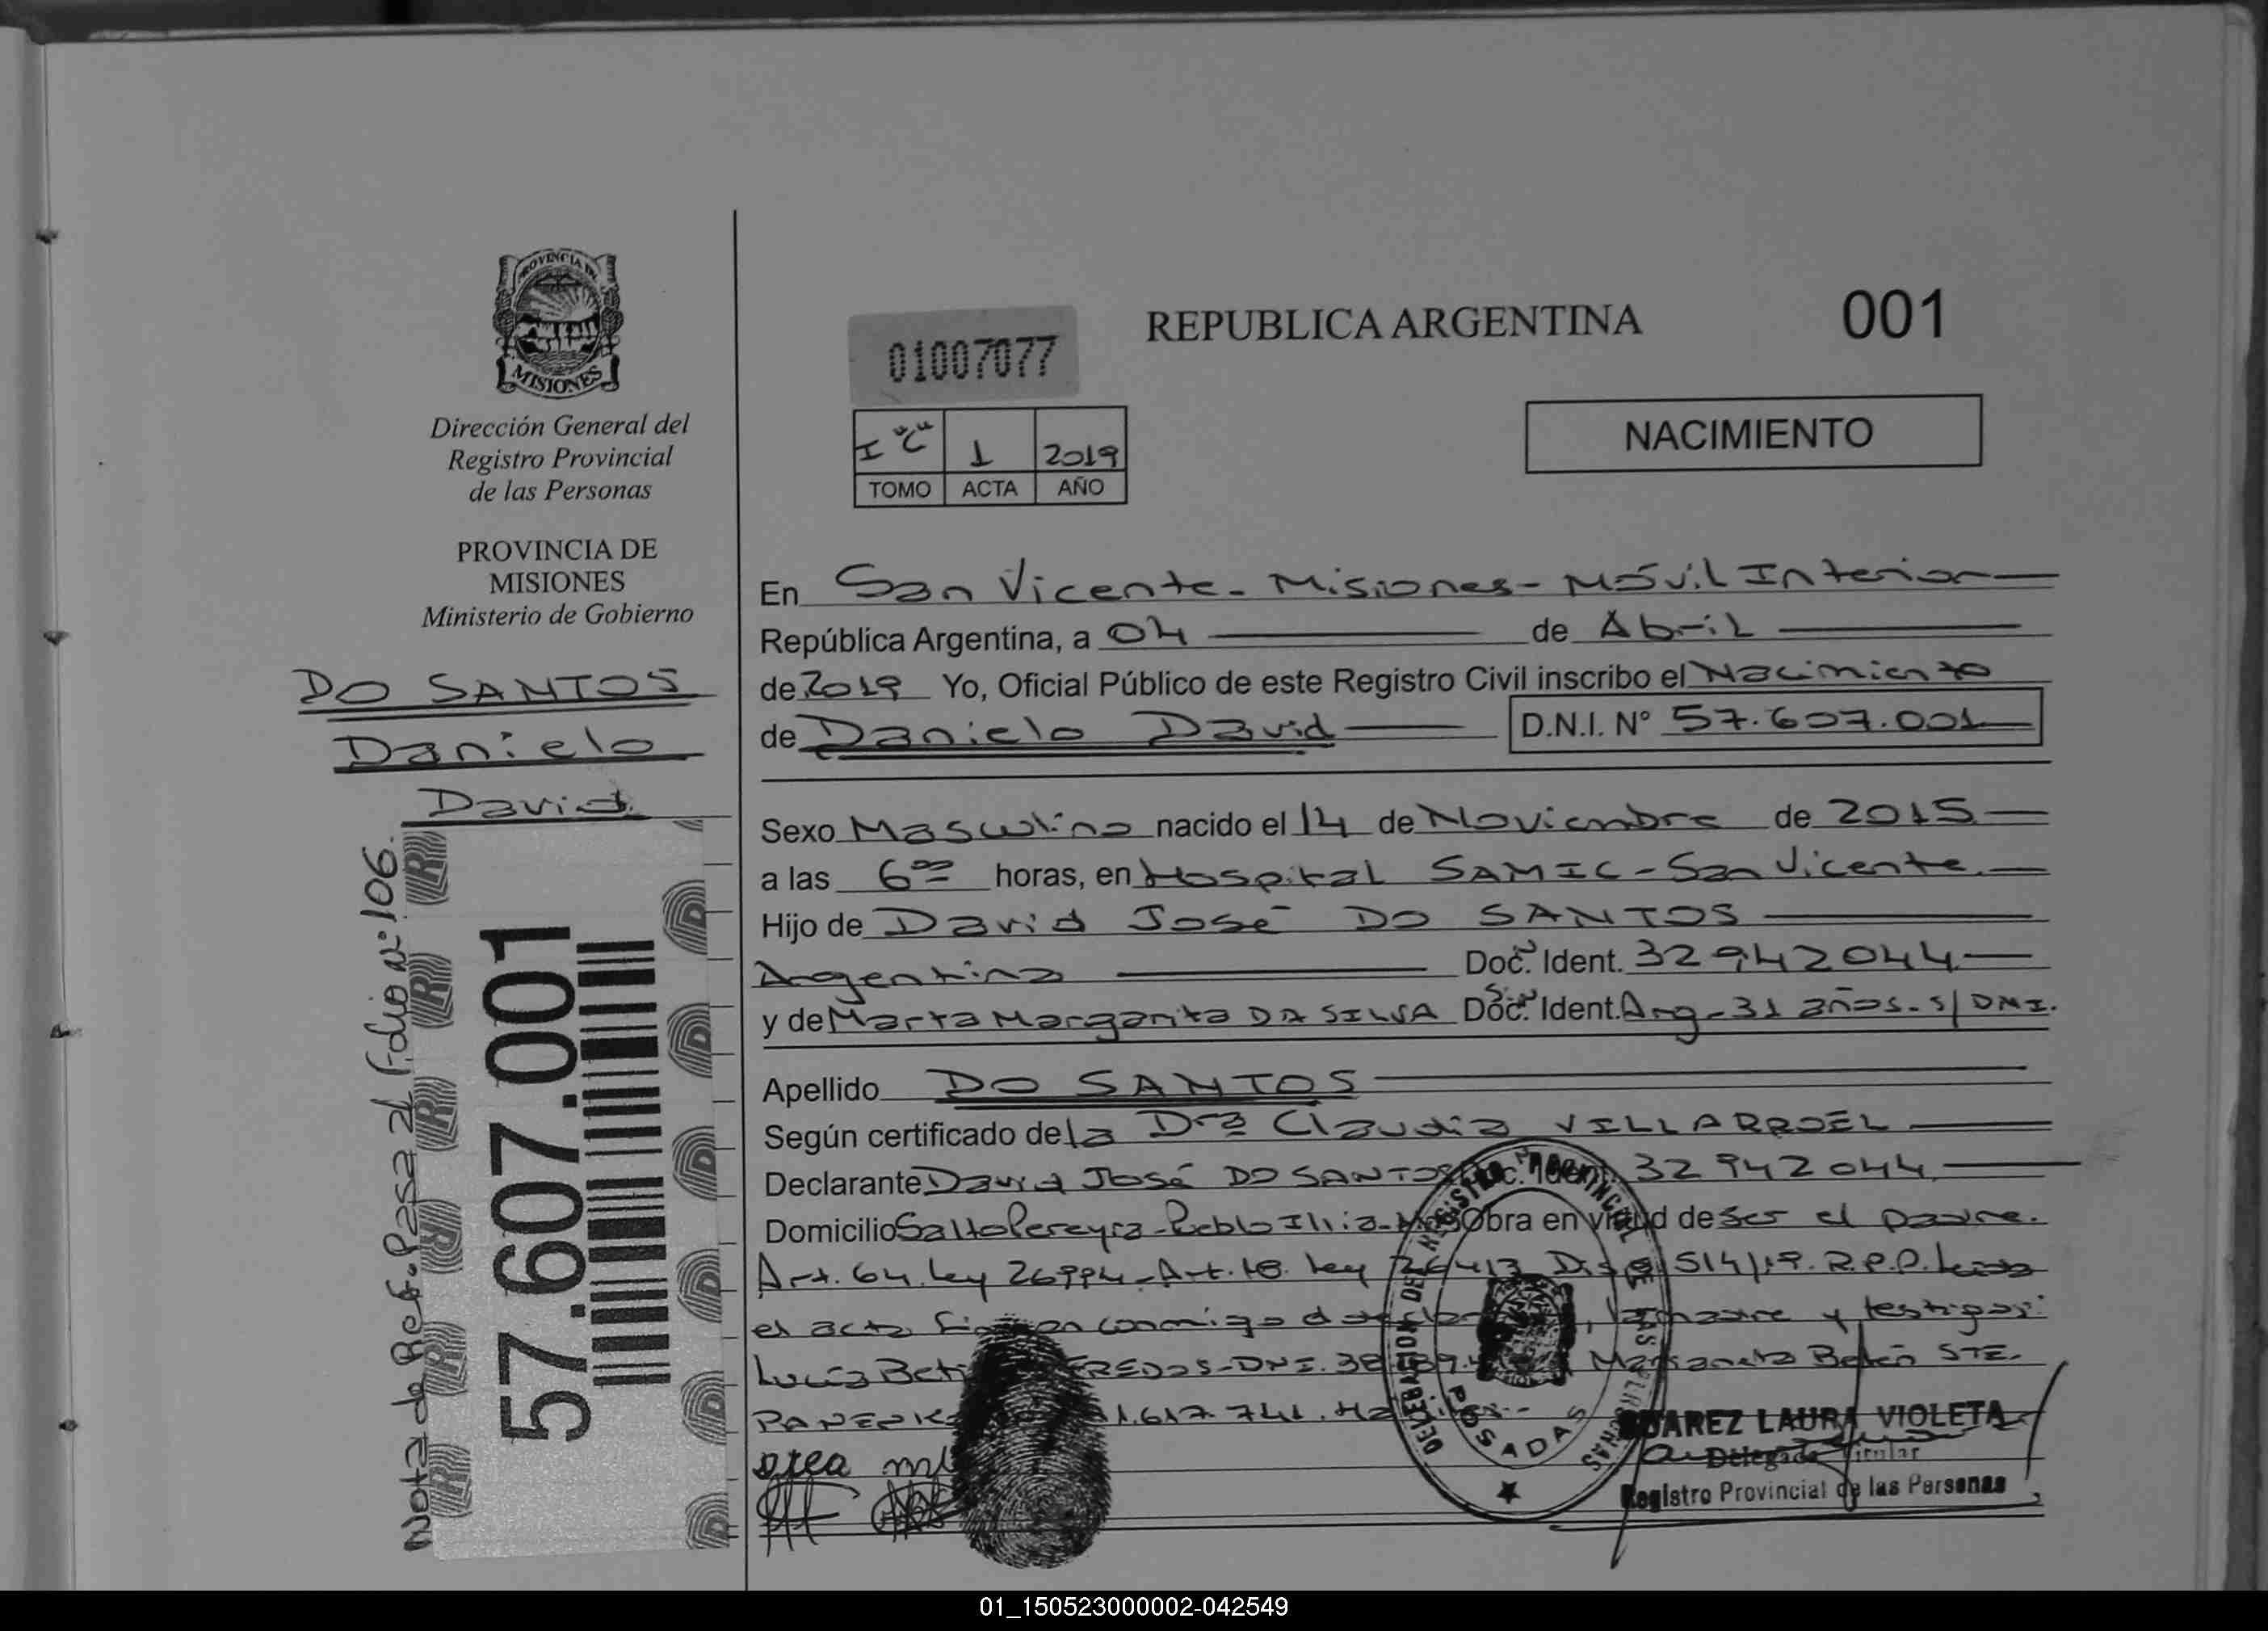 PROVINCIA DE
MISIONES
Dirección General del
Registro Provincial
de las Personas
PROVINCIA DE
MISIONES
Ministerio de Gobierno
DO SANTOS
Danielo
David
Nota de Ref. Pasa al Folio nº 106.
57.607.001
01007077
REPUBLICA ARGENTINA
001
I "C" 1 2019
TOMO ACTA AÑO
NACIMIENTO
En San Vicente - Misiones - Móvil Interior
República Argentina, a 04 de Abril
de 2019 Yo, Oficial Público de este Registro Civil inscribo el Nacimiento
de Danielo David D.N.I. N° 57.607.001
Sexo Masculino nacido el 14 de Noviembre de 2015
a las 6 00 horas, en Hospital SAMIC - San Vicente.
Hijo de David José DO SANTOS
Argentina Doc. Ident. 32942044
y de Marta Margarita DA SILVA Doc. Ident. Arg - 31 años - s/ DNI.
Apellido DO SANTOS
Según certificado de la Dra Claudia VILLARROEL
Declarante David José DO SANTOS Doc. Ident. 32942044
Domicilio Salto Pereyra - Pueblo Illia - Obra en virtud de ser el padre.
Art. 64. Ley 26994 - Art. 18. Ley 26413 514/19. R.P.P. Leída
el acta conmigo y testigos:
Lucía DNI. 38 Belén STE-
1.617.741.
REGISTRO PROVINCIAL DE LAS PERSONAS
DELEGACION DEL
POSADAS
SUAREZ LAURA VIOLETA
Delegada Titular
Registro Provincial de las Personas
01_150523000002-042549